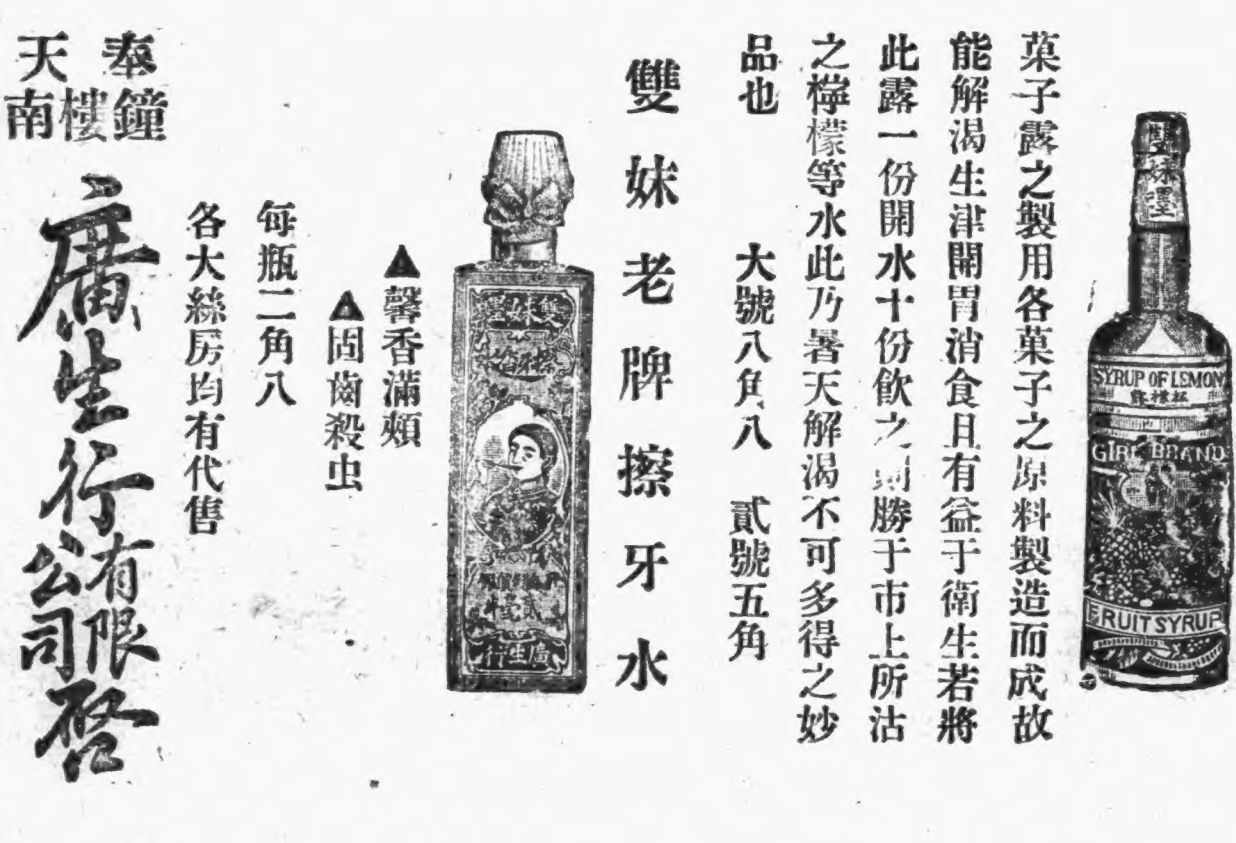 雙妹嘜
SYRUP OF LEMON
GIRL BRAND
FRUIT SYRUP
菓子露之製用各菓子之原料製造而成故
能解渴生津開胃消食且有益于衛生若將
此露一份開水十份飲之則勝于市上所沽
之檸檬等水此乃暑天解渴不可多得之妙
品也 大號八角八 貳號五角
雙妹老牌擦牙水
雙妹嘜
廣生行
▲馨香滿頰
▲固齒殺虫
每瓶二角八
各大絲房均有代售
奉天
鐘樓南
廣生行有限公司啓